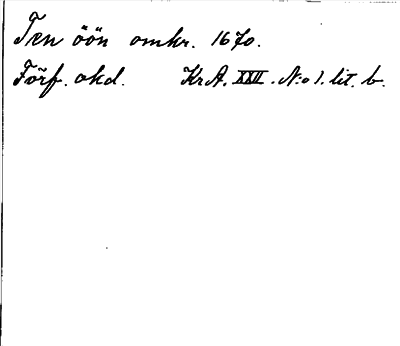 Ten öön omkr. 1670.
Förf. okd. KrA. XXII. N:o 1. lit. b.